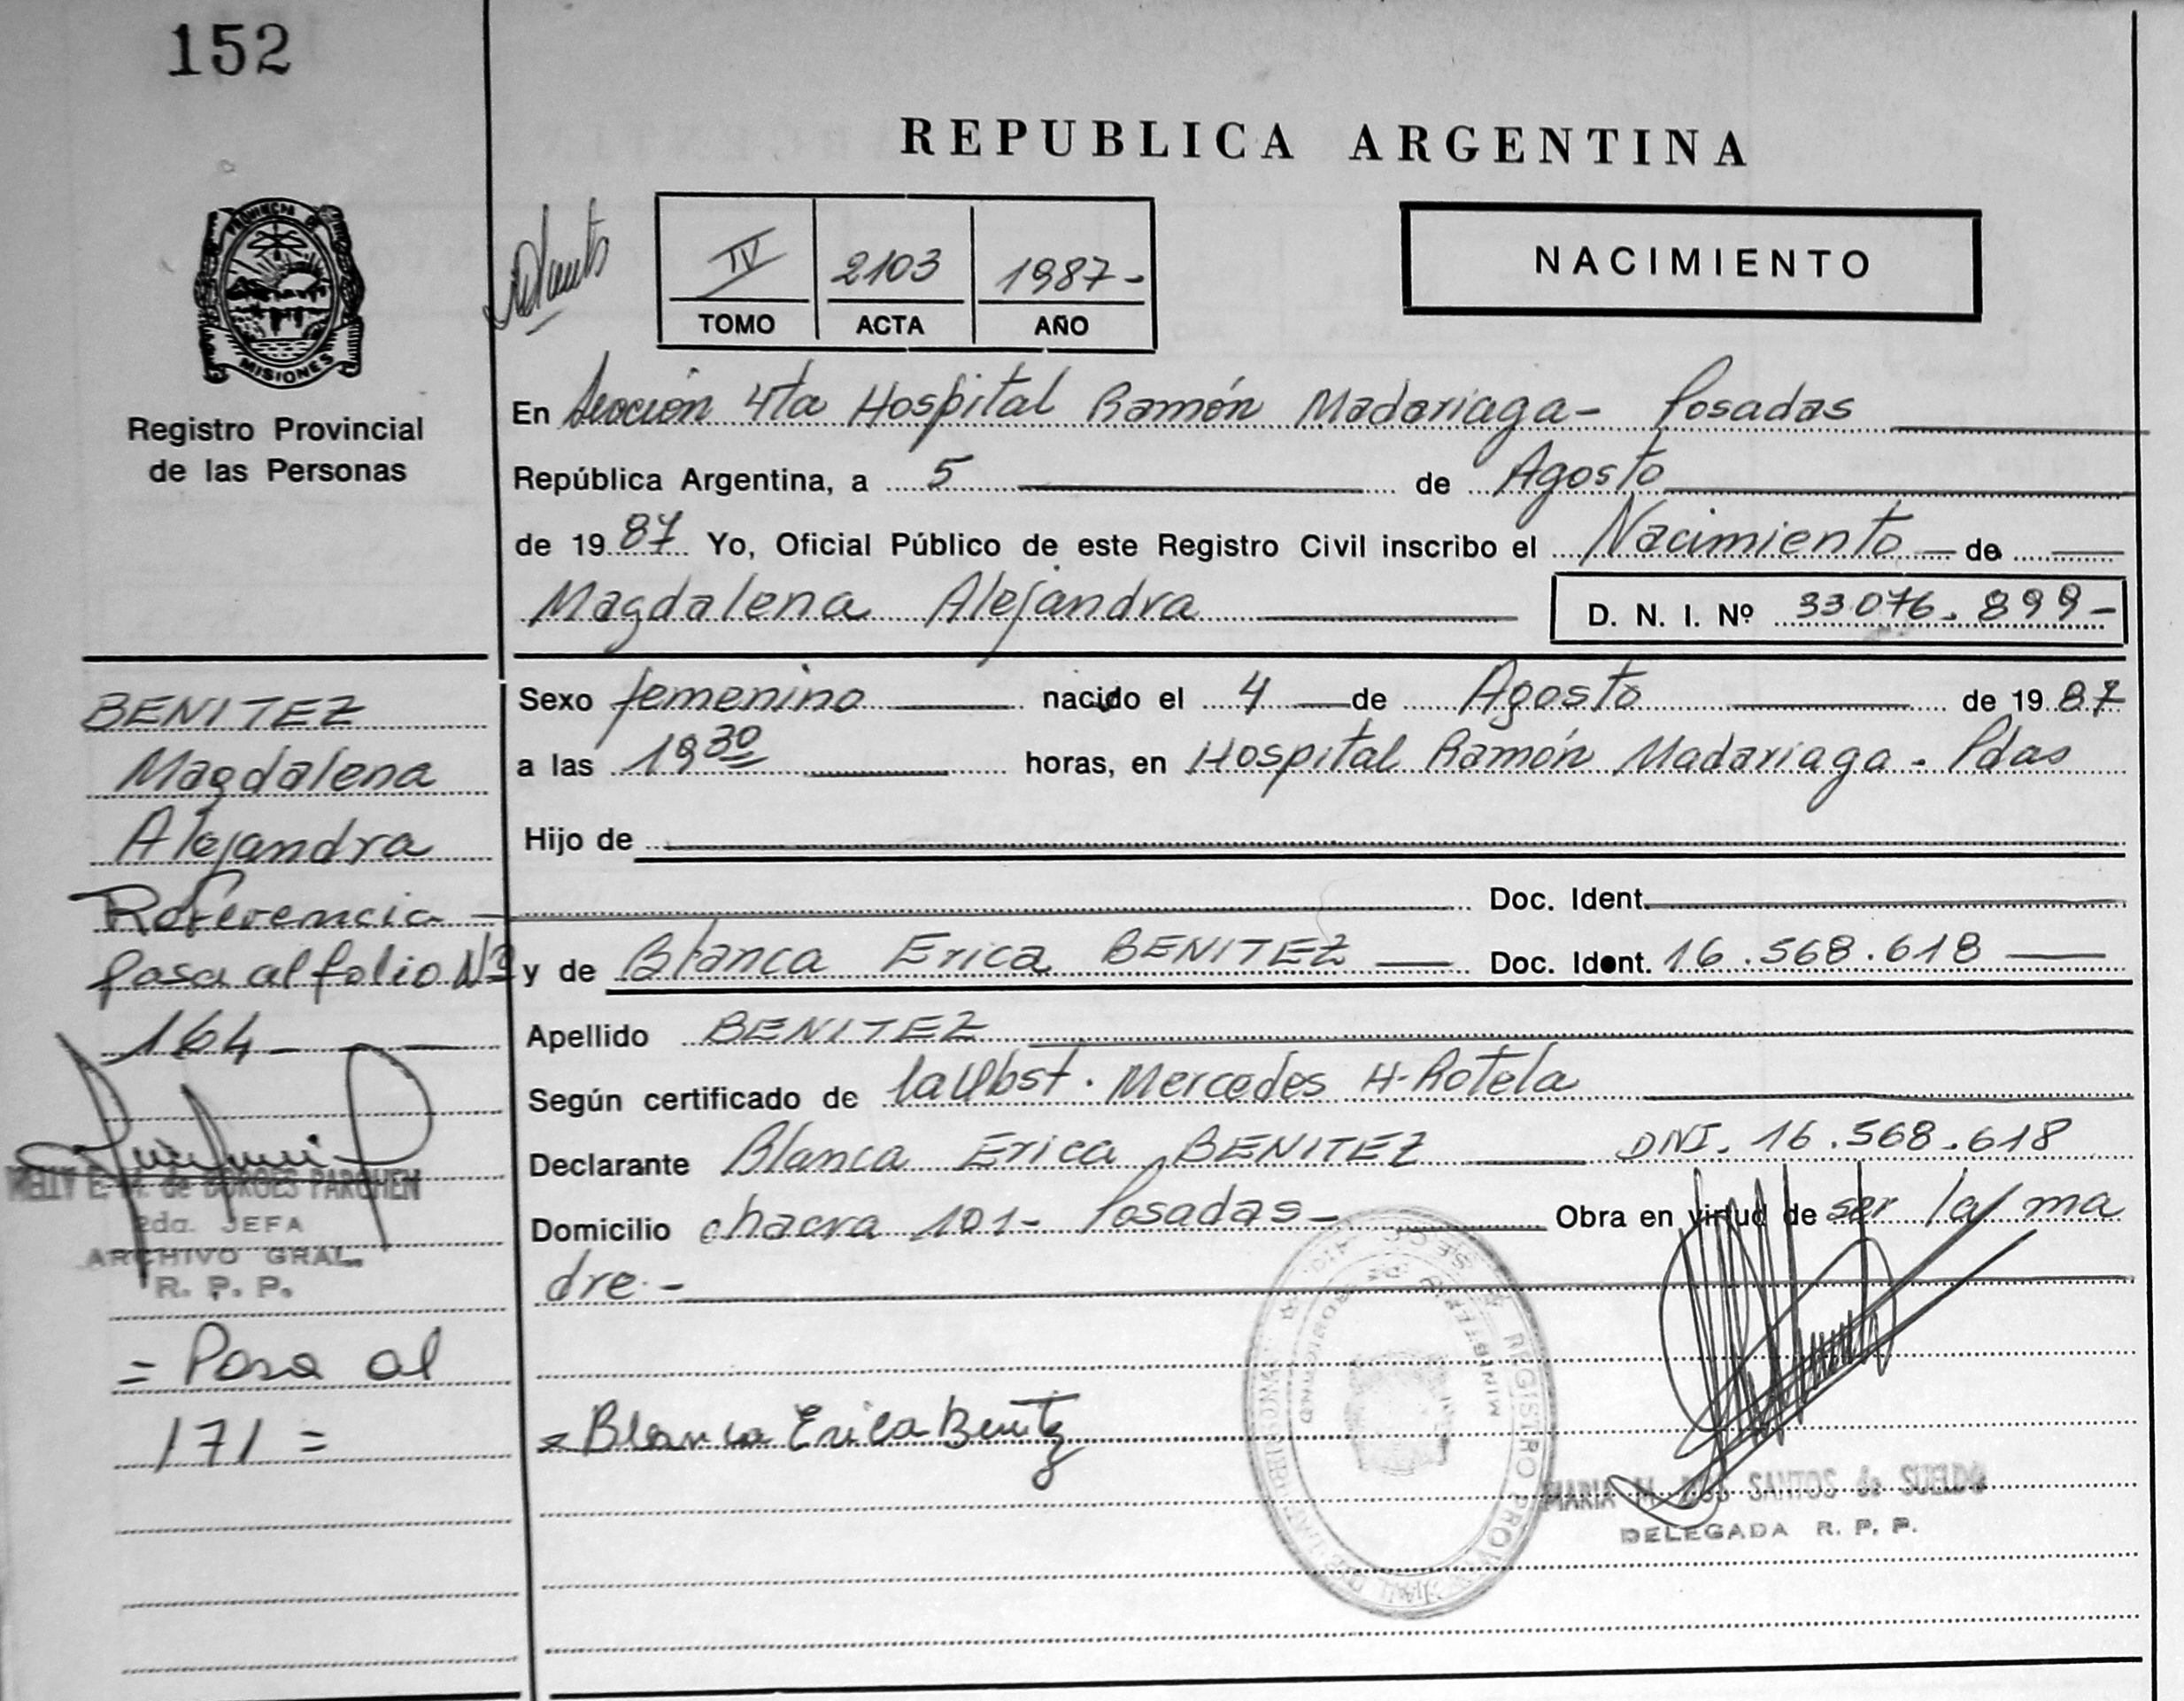 152
REPUBLICA ARGENTINA
PROVINCIA DE
MISIONES
Registro Provincial
de las Personas
IV 2103 1987-
TOMO ACTA AÑO
NACIMIENTO
En Sección 4ta Hospital Ramón Madariaga - Posadas
República Argentina, a 5 de Agosto
de 1987 Yo, Oficial Público de este Registro Civil inscribo el Nacimiento de
Magdalena Alejandra D. N. I. Nº 33076.899-
BENITEZ
Magdalena
Alejandra
Referencia
pasa al folio Nº
164
NELLY E. M. de BORGES PARCHEN
2da. JEFA
ARCHIVO GRAL.
R. P. P.
= Pasa al
171 =
Sexo femenino nacido el 4 de Agosto de 1987
a las 19 30 horas, en Hospital Ramón Madariaga - Pdas
Hijo de
Doc. Ident.
y de Blanca Erica BENITEZ Doc. Ident. 16.568.618
Apellido BENITEZ
Según certificado de la Obst. Mercedes H. Rotela
Declarante Blanca Erica BENITEZ DNI. 16.568.618
Domicilio chacra 101- Posadas- Obra en virtud de ser la ma
dre.-
Blanca Erica Benitz
REGISTRO
MARIA M. DOS SANTOS de SUELDO
DELEGADA R. P. P.